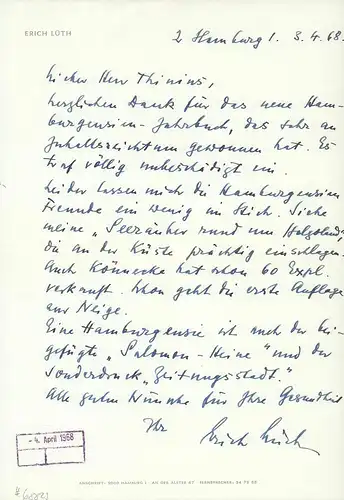 ERICH LÜTH
2 Hamburg 1. 3.4.68.
Lieber Herr Thinius,
herzlichen Dank für das neue Ham-
burgensien-Jahrbuch, das sehr an
Inhaltsreichtum gewonnen hat. Es
traf völlig unbeschädigt ein.
Leider lassen mich die Hamburgensien
Freunde ein wenig im Stich. Siehe
meine „Seezauber rund um Helgoland",
die an der Küste prächtig einschlagen.
Auch Könnecke hat schon 60 Expl.
verkauft. Schon geht die erste Auflage
zur Neige.
Eine Hamburgensie ist auch der bei-
gefügte „Salomon-Heine" und der
Sonderdruck „Zeitungsstadt".
Alle guten Wünsche für Ihre Gesundheit
Ihr Erich Lüth
-4. April 1968
HAMBURG 1 · AN DER ALSTER